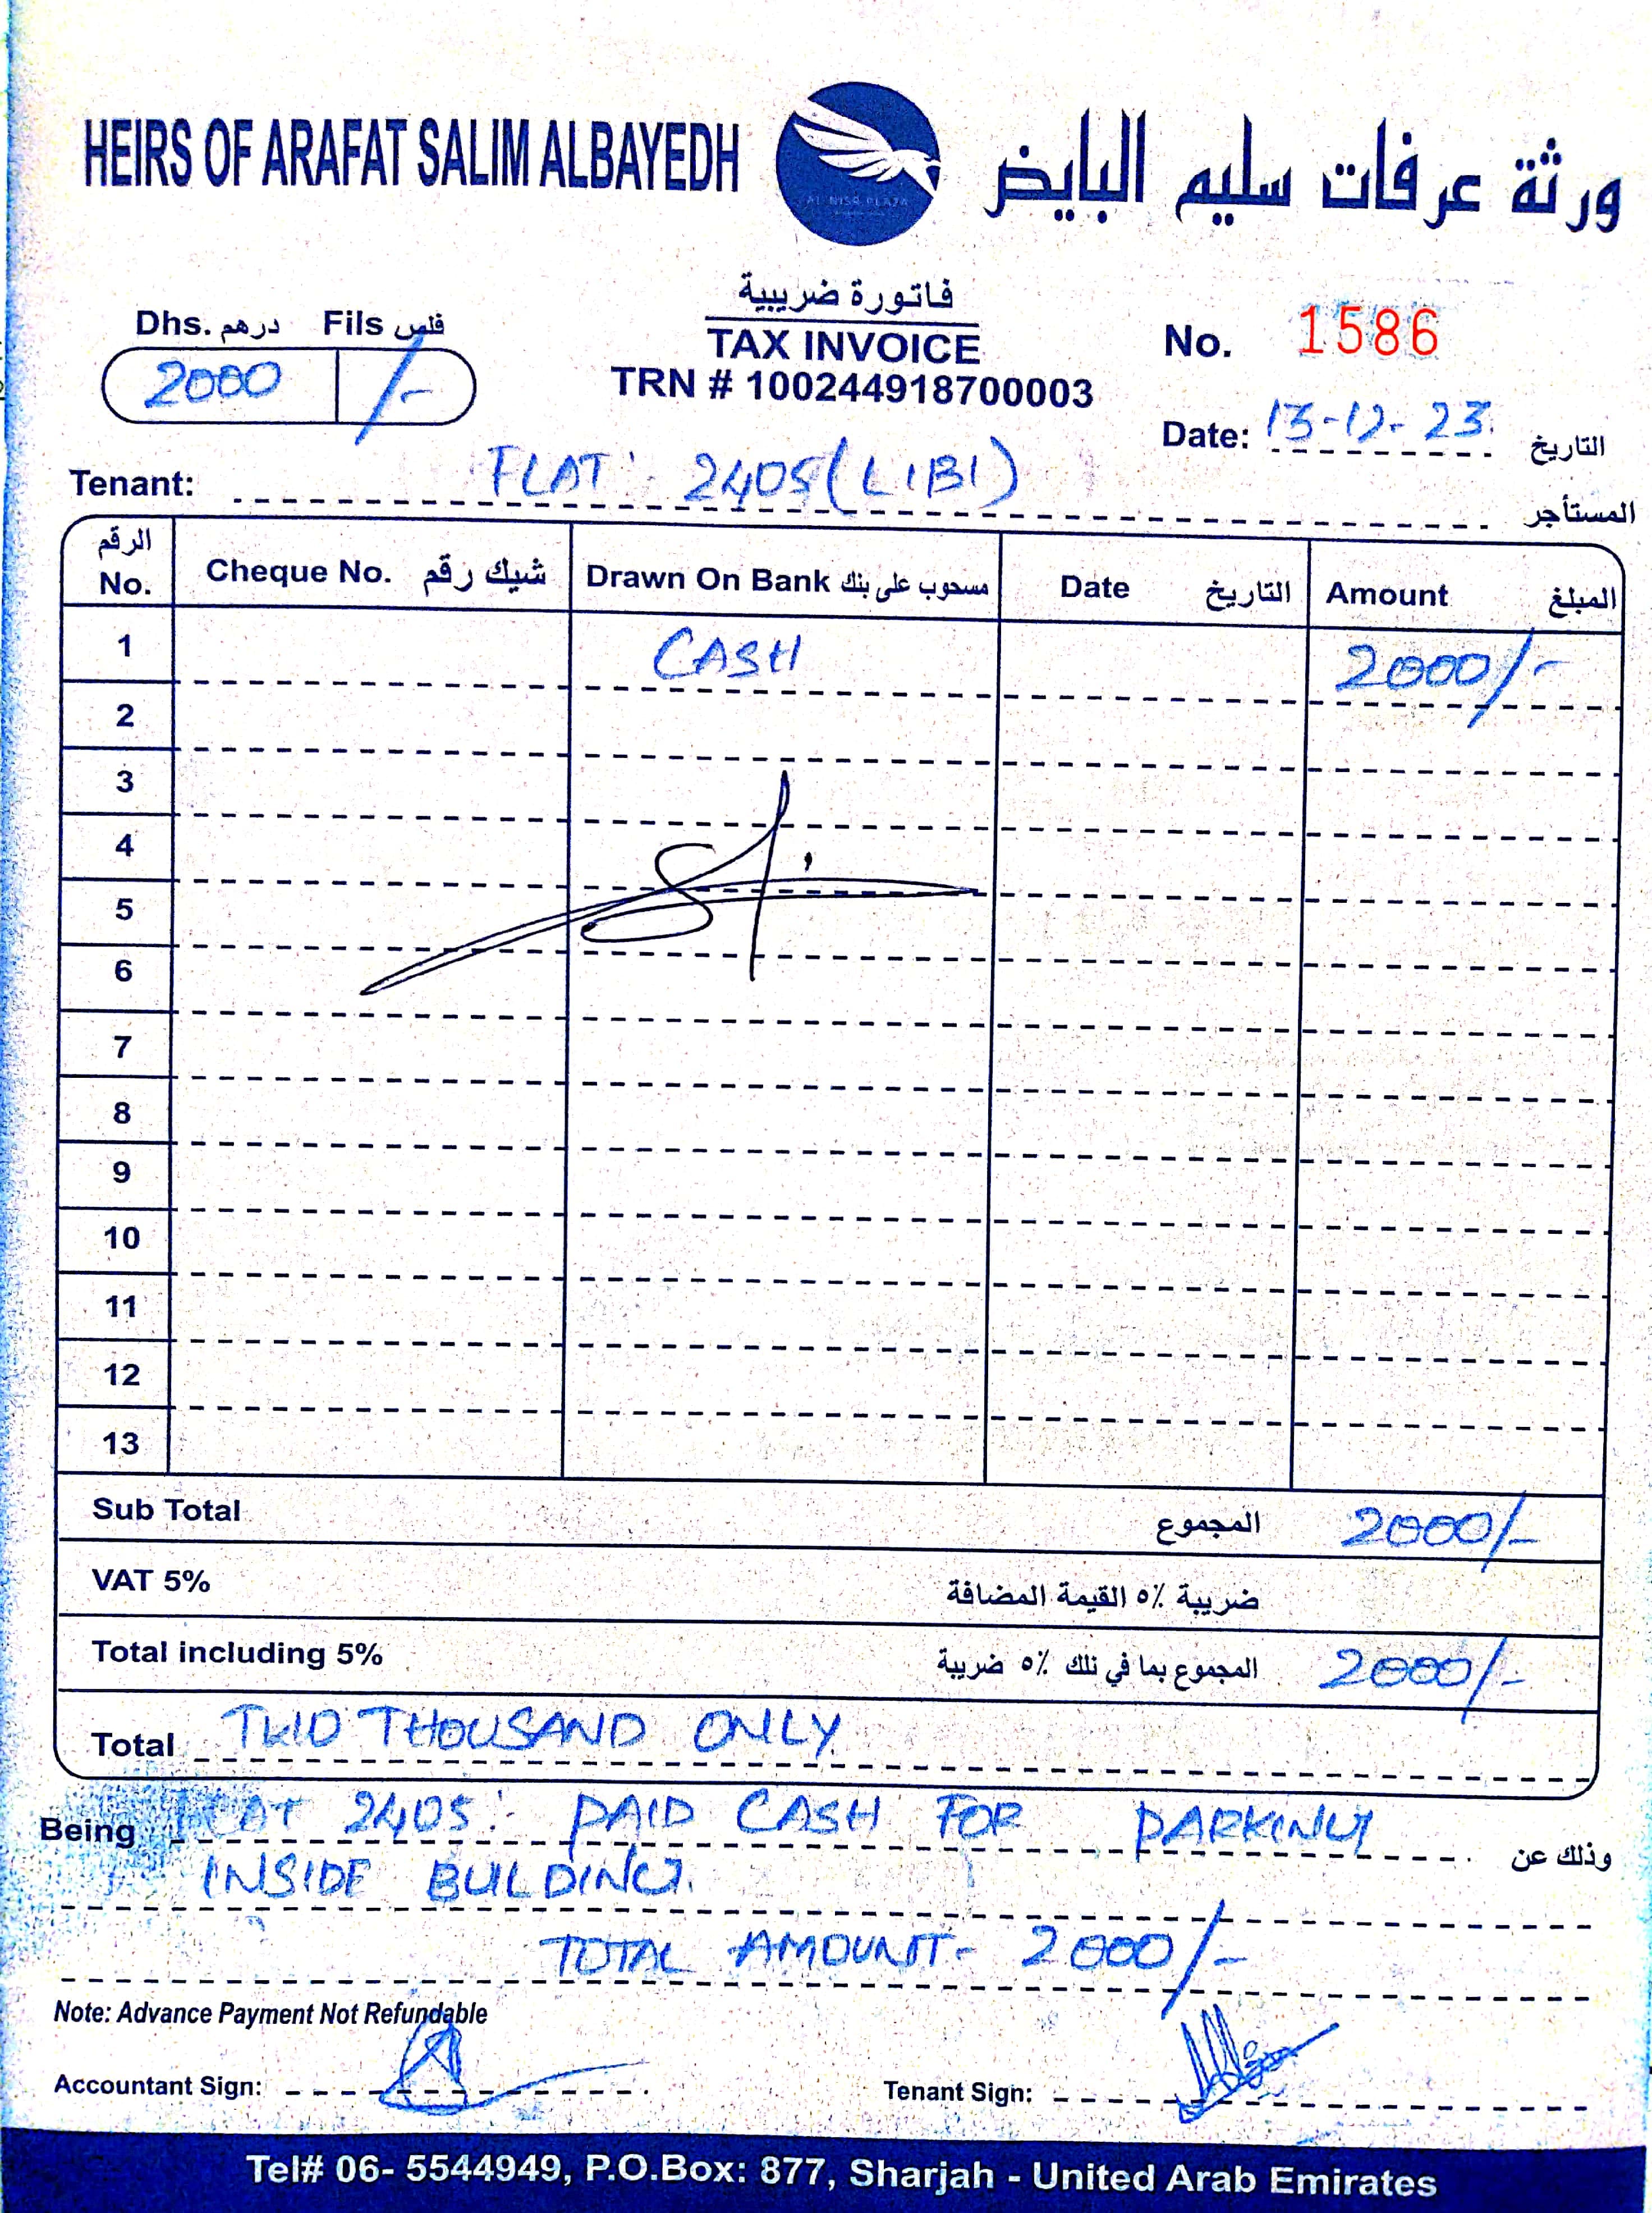 HEIRS OF ARAFAT SALIM ALBAYEDH
ورثة عرفات سليم البايض
AL NISR PLAZA
فاتورة ضريبية
TAX INVOICE
TRN # 100244918700003
Dhs. درهم Fils فلس
2000 /-
No. 1586
Date: 13-12-23. التاريخ
Tenant: FLAT: 2405 (LIBI) المستأجر
الرقم No. Cheque No. شيك رقم Drawn On Bank مسحوب على بنك Date التاريخ Amount المبلغ
1 CASH 2000/-
2
3
4
5
6
7
8
9
10
11
12
13
Sub Total المجموع 2000/-
VAT 5% ضريبة ٥٪ القيمة المضافة
Total including 5% المجموع بما في ذلك ٥٪ ضريبة 2000/-
Total TWO THOUSAND ONLY.
Being FLAT 2405: PAID CASH FOR PARKING وذلك عن
INSIDE BUILDING.
TOTAL AMOUNT- 2000/-
Note: Advance Payment Not Refundable
Accountant Sign: Tenant Sign:
Tel# 06- 5544949, P.O.Box: 877, Sharjah - United Arab Emirates